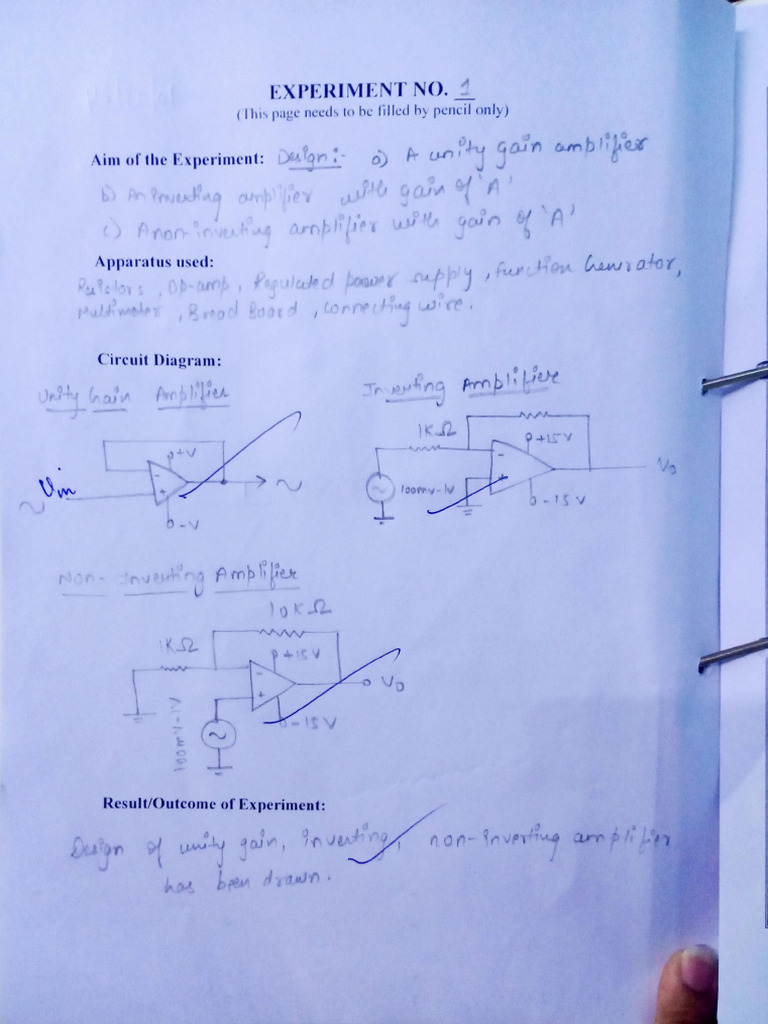 EXPERIMENT NO. 1
(This page needs to be filled by pencil only)
Aim of the Experiment: Design:- a) A unity gain amplifier
b) An inverting amplifier with gain of 'A'
c) A non-inverting amplifier with gain of 'A'
Apparatus used:
Resistors, OP-amp, Regulated power supply, function Generator,
Multimeter, Bread Board, connecting wire.
Circuit Diagram:
Unity Gain Amplifier
Inverting Amplifier
+V
Vin
-V
1KΩ
+15V
100mv-1V
V0
-15V
Non-Inverting Amplifier
10KΩ
1KΩ
+15V
V0
100mV-1V
-15V
Result/Outcome of Experiment:
Design of unity gain, inverting, non-inverting amplifier
has been drawn.